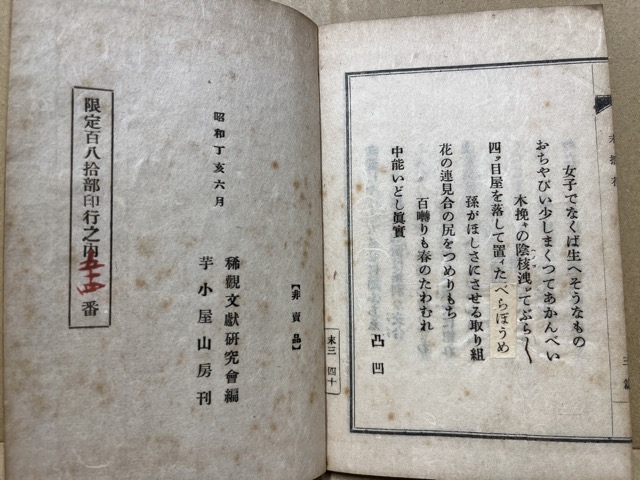 女子でなくば生へそうなもの
おちやぴい少しまくつてあかんべい
木挽の陰核洩でぶら〱
四ッ目屋を落して置ィたべらぼうめ
孫がほしさにさせる取り組
花の連見合の尻をつめりもち
百囀りも春のたわむれ
中能いどし眞實
凸凹
末三 四十
【非賣品】
稀觀文獻研究會編
芋小屋山房刊
昭和丁亥六月
限定百八拾部印行之内
五十四
番